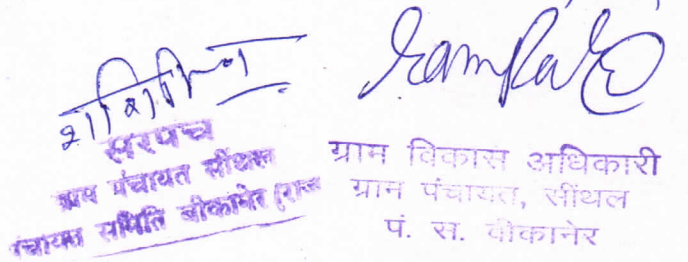 सरपंच
ग्राम पंचायत सींथल
पंचायत समिति बीकानेर (राज
ग्राम विकास अधिकारी
ग्राम पंचायत, सींथल
पं. स. बीकानेर